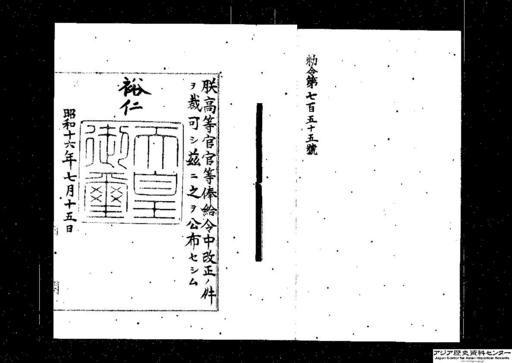 勅令第七百五十五號
朕高等官官等俸給令中改正ノ件
ヲ裁可シ茲ニ之ヲ公布セシム
裕仁
天皇御璽
昭和十六年七月十五日
アジア歴史資料センター
Japan Center for Asian Historical Records